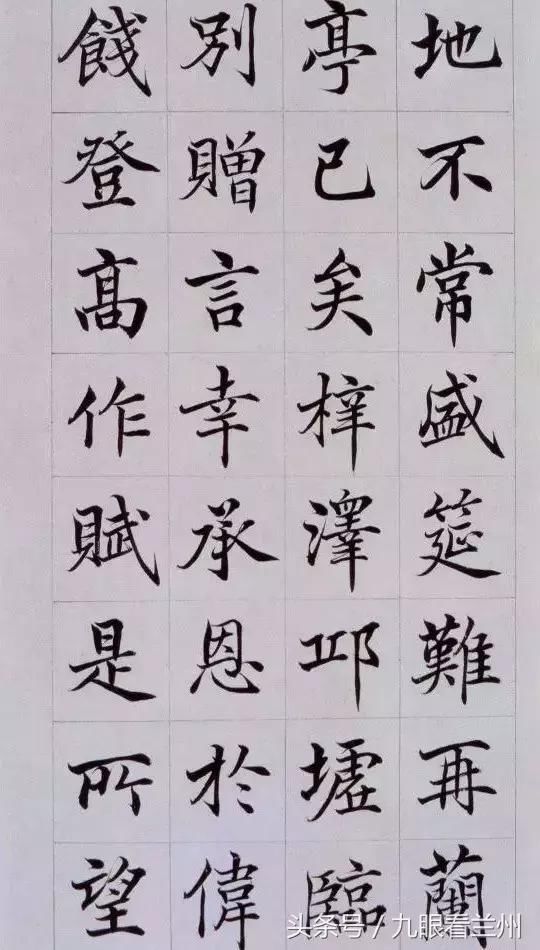 地不常盛筵難再蘭
亭已矣梓澤邱墟臨
別贈言幸承恩於偉
餞登高作賦是所望
头条号／九眼看兰州